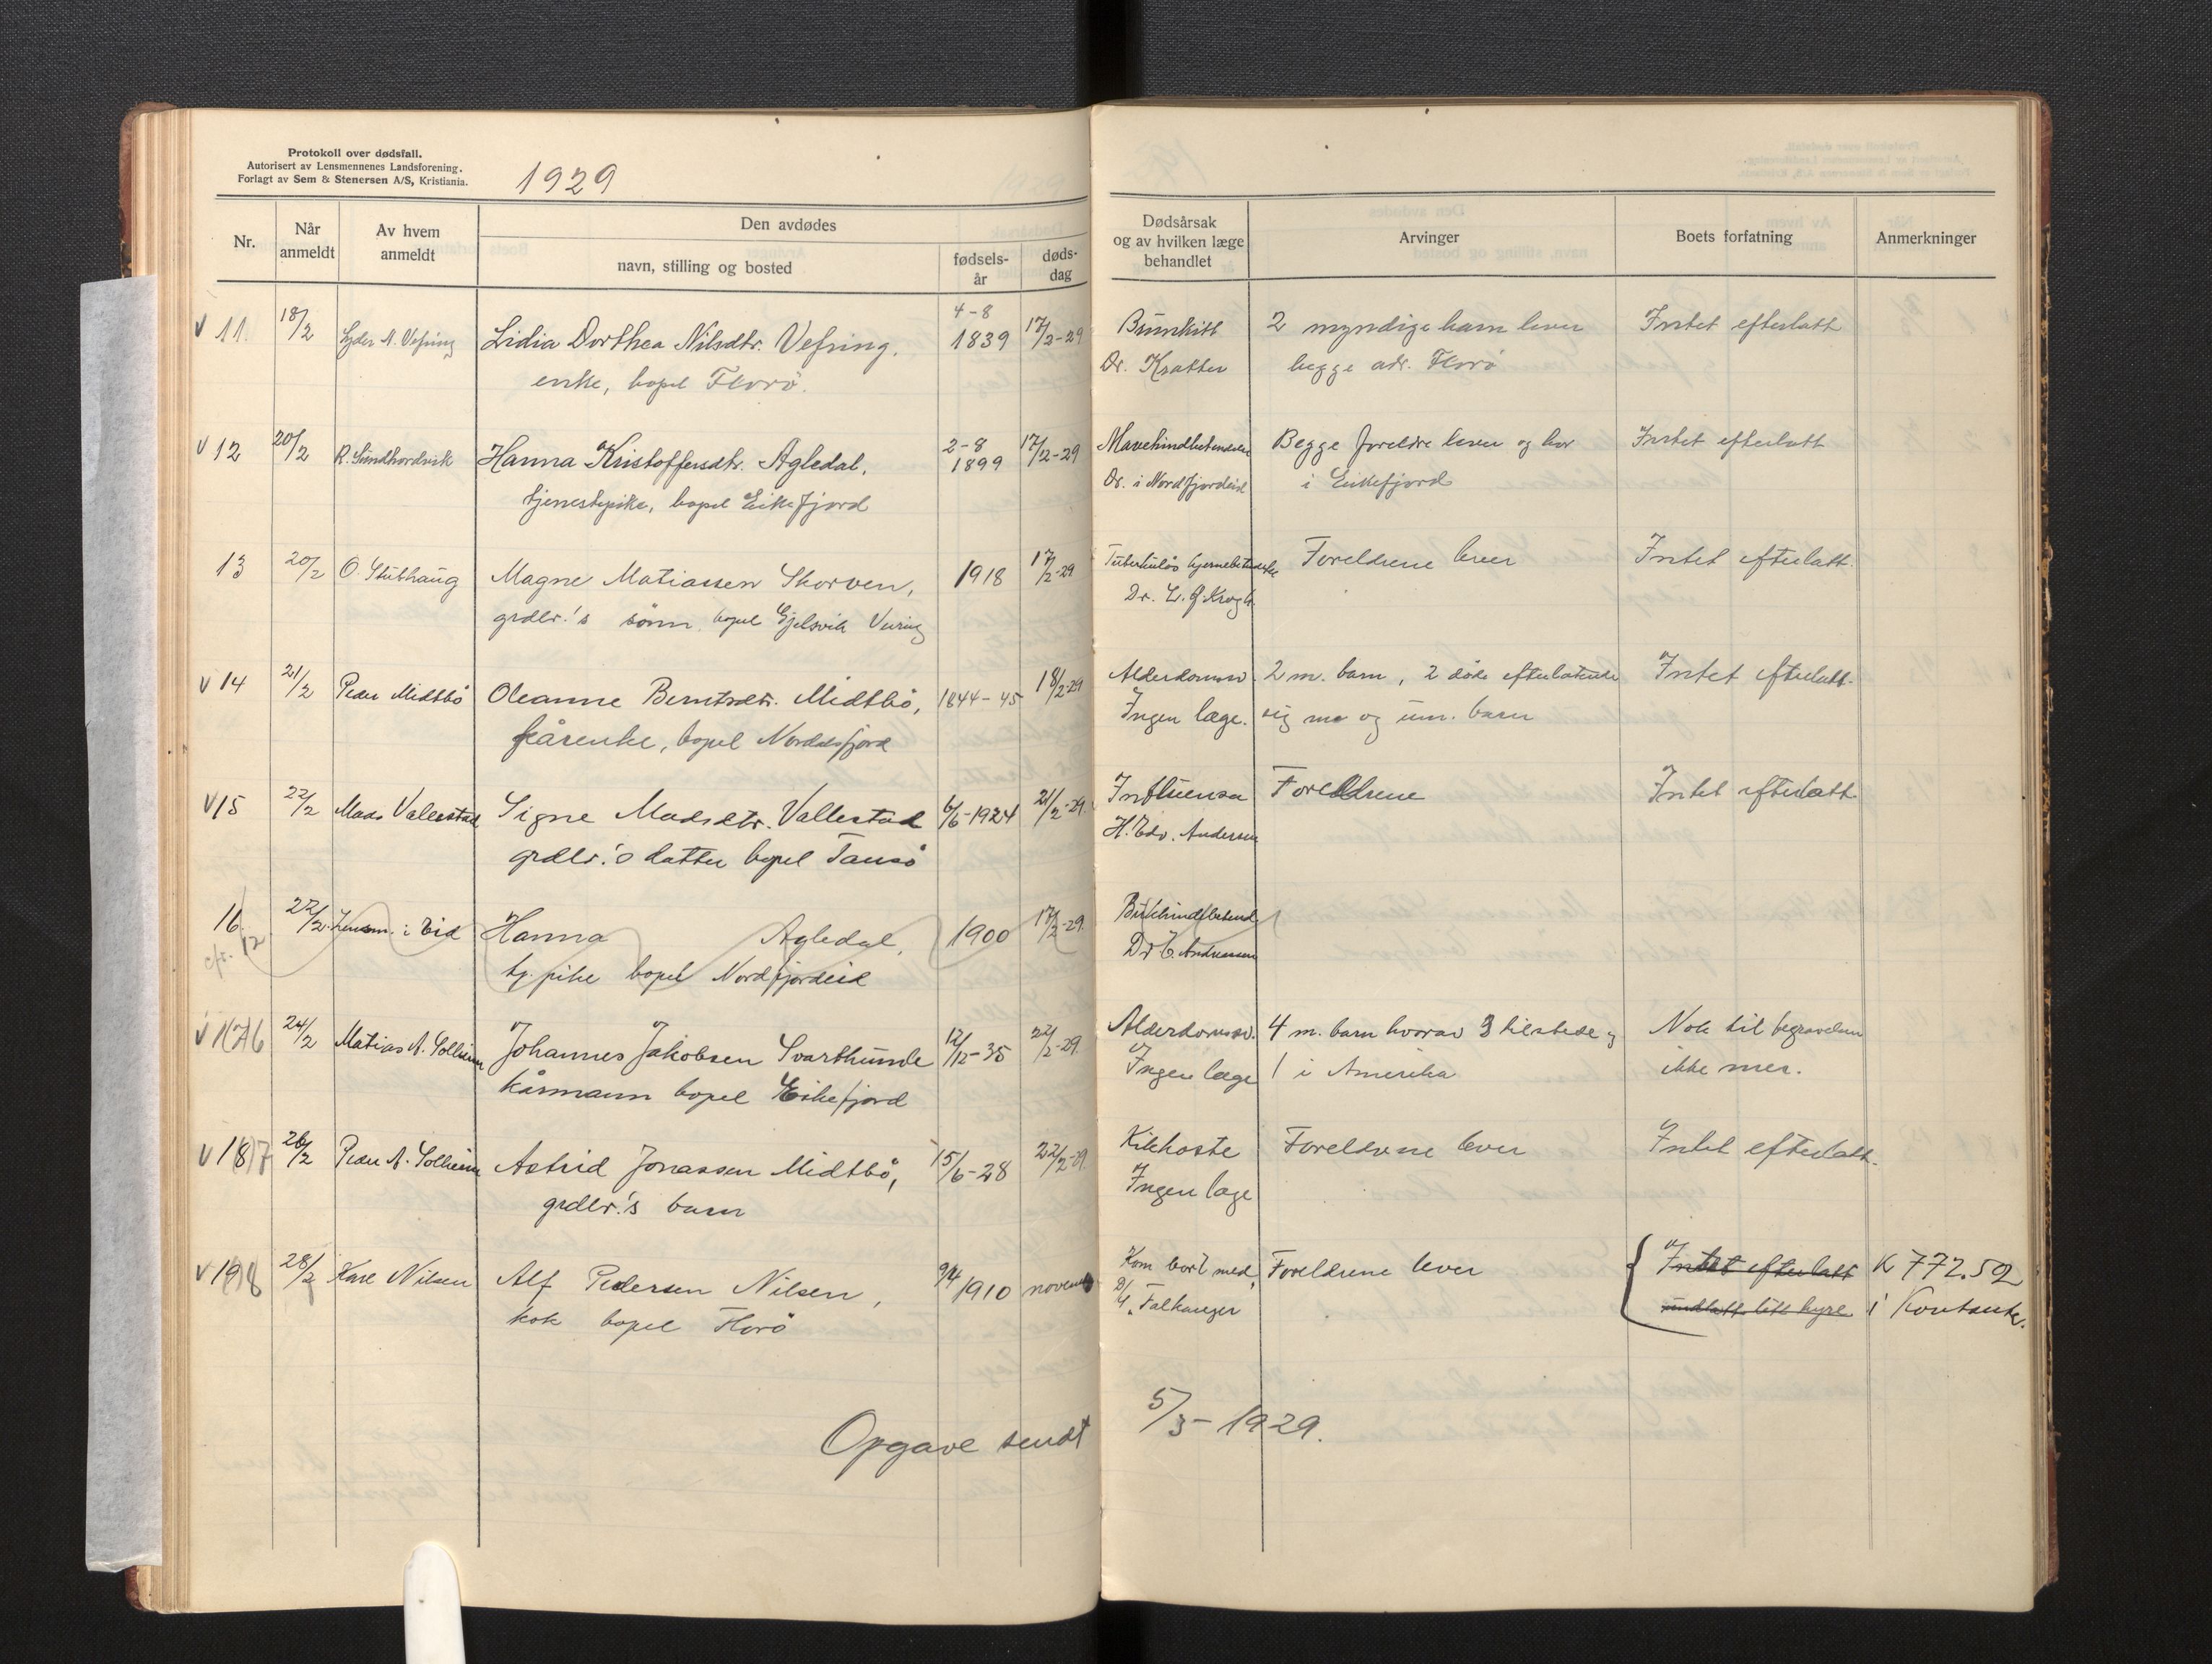 Protokoll over dødsfall.
Autorisert av Lensmennenes Landsforening.
Forlagt av Sem & Stenersen A/S, Kristiania.
1929
Nr.
Når anmeldt
Av hvem anmeldt
Den avdødes
navn, stilling og bosted
fødsels-år
døds-dag
Dødsårsak og av hvilken læge behandlet
Arvinger
Boets forfatning
Anmerkninger
v 11 18/2 Lyder N. Vefring Lidia Dorthea Nilsdtr. Vefring, 4-8 1839 17/2-29 2 myndige barn lever Intet efterlatt
enke, bopel Florø. Dr. Krafter begge adr. Florø
v 12 20/2 R. Sundhordvik Hanna Kristoffersdtr. Agledal, 2-8 1899 17/2-29 Begge foreldre lever og bor Intet efterlatt
tjenestepike, bopel Eikefjord Dr. i Nordfjordeid i Eikefjord
13 20/2 O. Stubhaug Magne Matiassen Skorven, 1918 17/2-29 Tuberkuløs Foreldrene lever Intet efterlatt.
grdbr.'s sønn bopel Dr. L. J. Krogh
v 14 21/2 Peder Midtbö Oleanne Berntsdtr. Midtbö, 1844-45 18/2-29 Alderdomssv. 2 m. barn, 2 døde efterlatende Intet efterlatt.
kårenke, bopel Nordalsfjord Ingen læge. sig m. og um. barn
v 15 22/2 Mads Vallestad Signe Madsdtr. Vallestad 6/6-1924 21/2-29. Influensa Foreldrene Intet efterlatt.
grdbr.'s datter bopel Tansö H. Edv. Andersen
16 22/2 Lensm. i Eid Hanna Agledal, 1900 17/2-29.
cfr. 12 tj. pike bopel Nordfjordeid Dr E. Andreassen
v 1(7)6 24/2 Matias A. Solheim Johannes Jakobsen Svarthumle 12/12-35 22/2-29. Alderdomssv. 4 m. barn hvorav 3 tilstede og Nok til begravelsen
kårmann bopel Eikefjord Ingen læge 1 i Amerika ikke mer.
v 1(8)7 26/2 Peder A. Solheim Astrid Jonassen Midtbö, 15/6-28 22/2-29. Kikhoste Foreldrene lever Intet efterlatt.
grdbr.'s barn Ingen læge
v 1(9)8 28/2 Kare Nilsen Alf Pedersen Nilsen, 9/4 1910 novem Kom bort med Foreldrene lever Intet efterlatt K 772.52
kok bopel Florö D/S „Falkanger undtatt litt hyre i Kontanter.
Opgave sendt 5/3-1929.